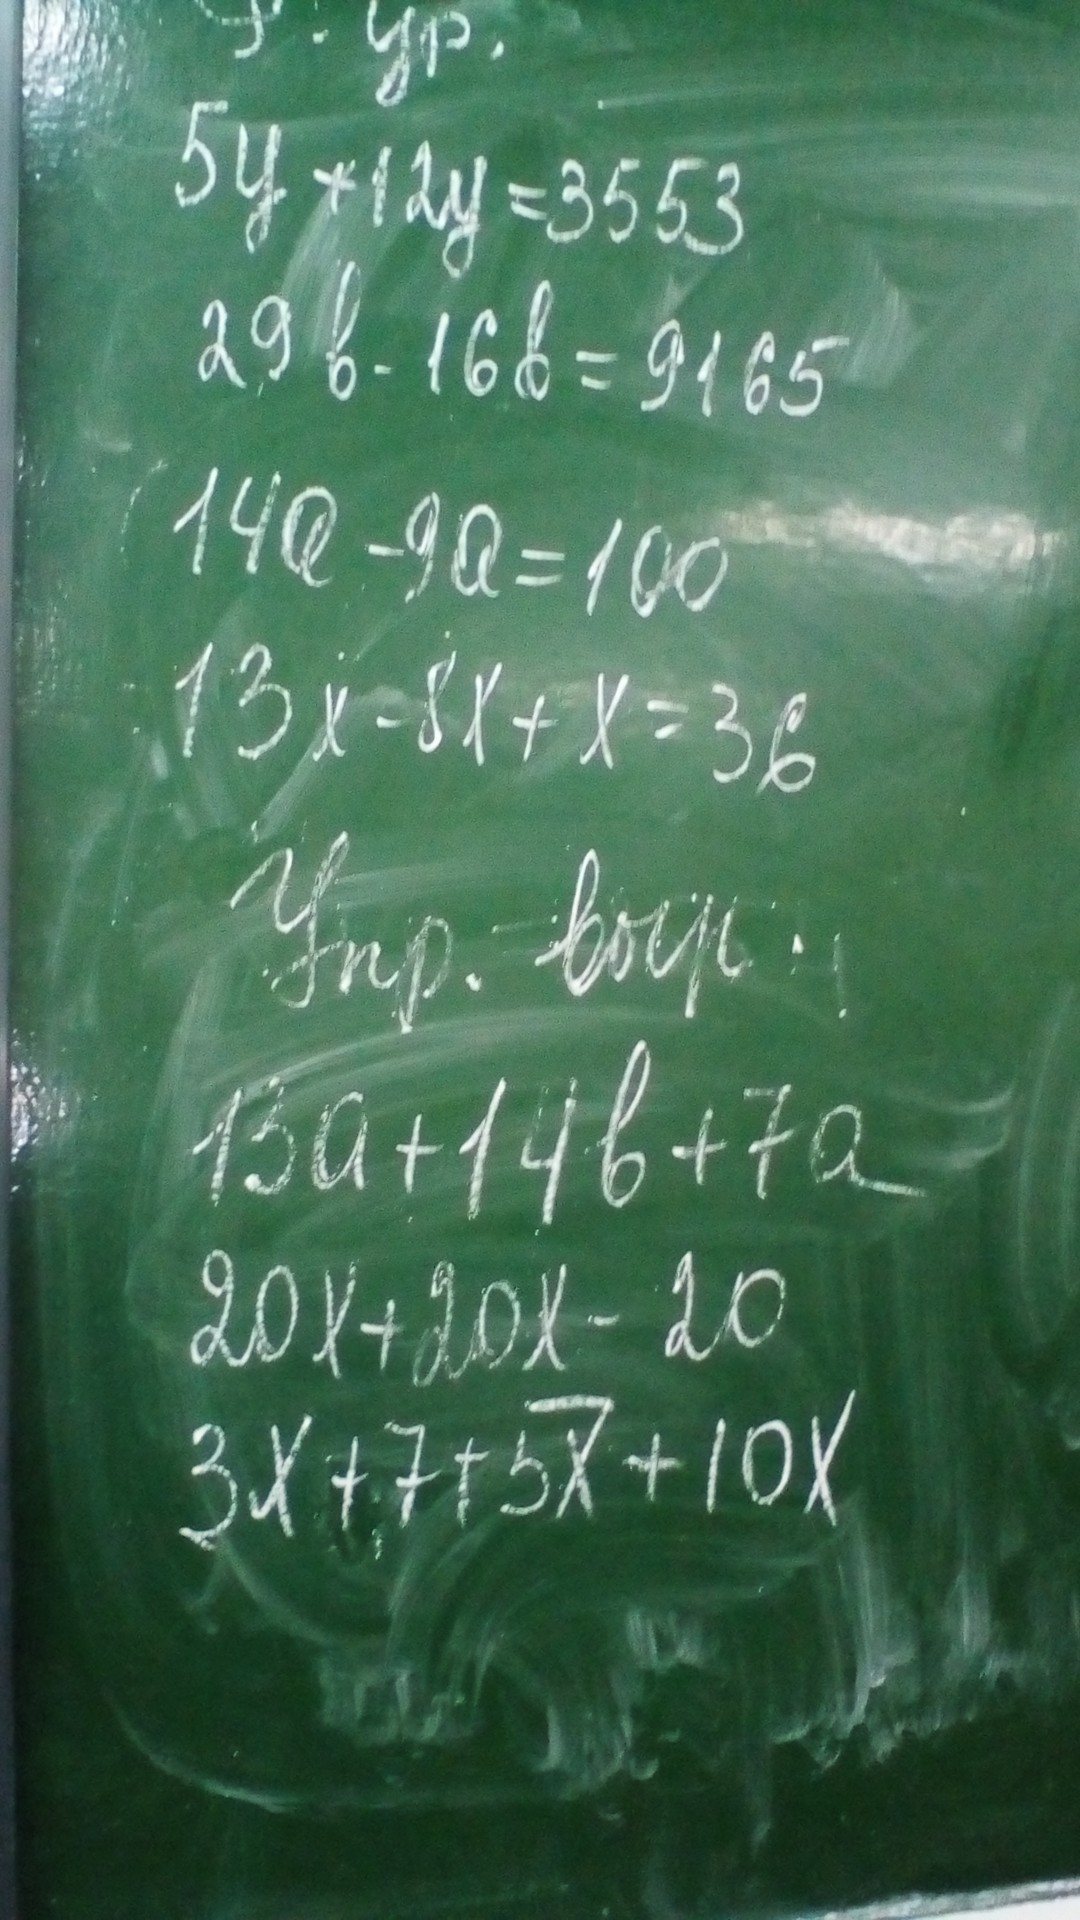 Р. ур.
5y + 12y = 3553
29в - 16в = 9165
14a - 9a = 100
13x - 8x + x = 36
Упр. - выр.
13a + 14в + 7a
20x + 20x - 20
3x + 7 + 5x + 10x